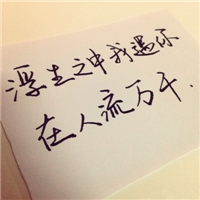 浮生之中我遇你
在人流万千.